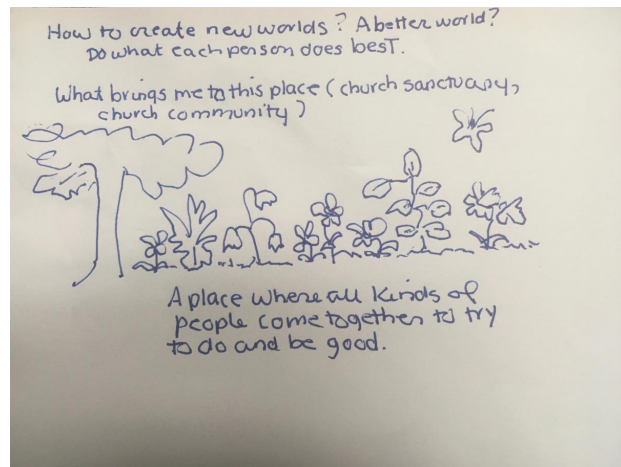 How to create new worlds? A better world?
Do what each person does best.
What brings me to this place (church sanctuary,
church community)
A place where all kinds of
people come together to try
to do and be good.